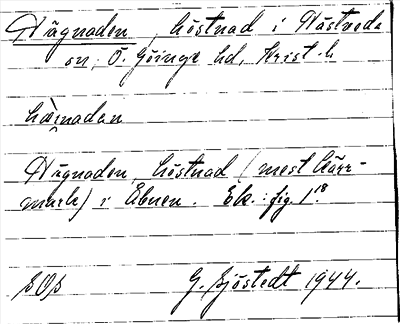 Hägnaden, höstnad i Häströds
sn, Ö. Göinge hd, Krist. l.
hæ̀ŋnadan
Hägnaden, höstnad (mest kärr-
mark) i Ebnen. Ek. : fig. 1¹⁸.
SOS G. Sjöstedt 1944.